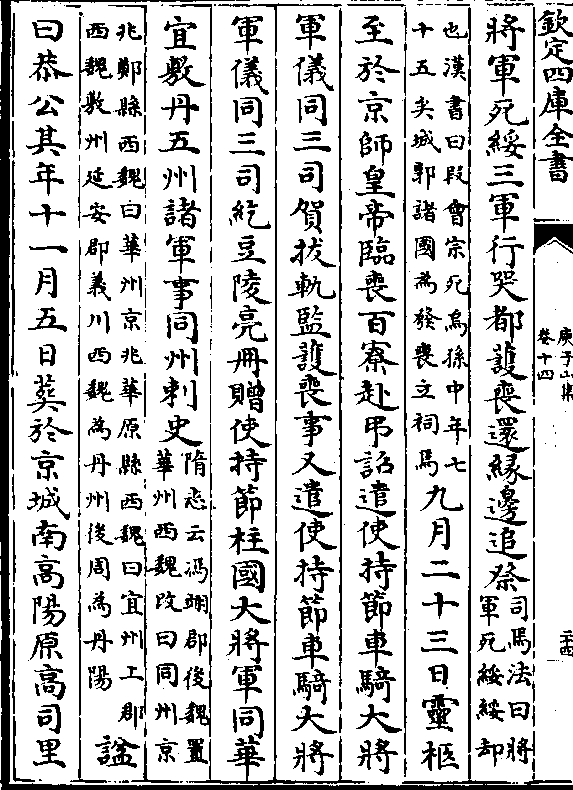 欽定四庫全書
庾子山集
卷十四
將軍死綏三軍行哭都護喪還緣邊追祭
司馬法曰將
軍死綏綏却
也漢書曰段會宗死烏孫中年七
十五矣城郭諸國為發喪立祠焉
九月二十三日靈柩
至於京師皇帝臨喪百寮赴弔詔遣使持節車騎大將
軍儀同三司賀拔軌監護喪事又遣使持節車騎大將
軍儀同三司紇豆陵亮冊贈使持節柱國大將軍同華
宜敷丹五州諸軍事同州刺史
隋志云馮翊郡後魏置
華州西魏改曰同州京
兆鄭縣西魏曰華州京兆華原縣西魏曰宜州上郡
西魏敷州延安郡義川西魏為丹州後周為丹陽
諡
曰恭公其年十一月五日葬於京城南高陽原高司里